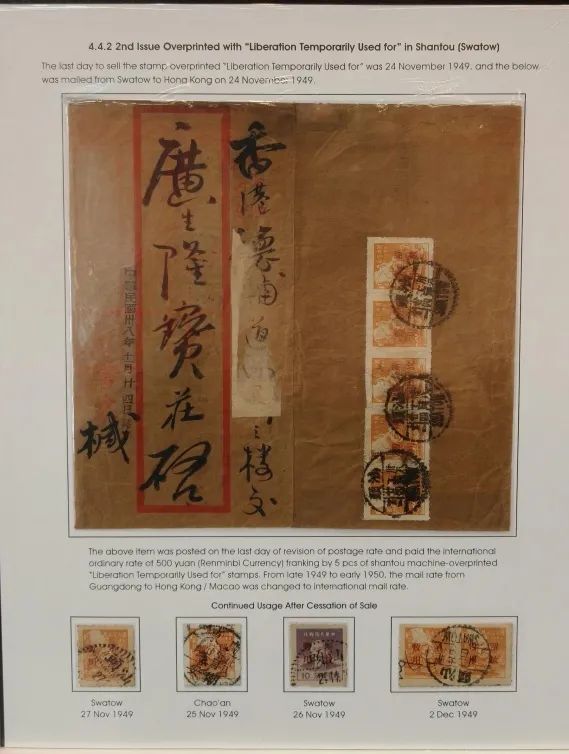 4.4.2 2nd Issue Overprinted with "Liberation Temporarily Used for" in Shantou (Swatow)
The last day to sell the stamp overprinted "Liberation Temporarily Used for" was 24 November 1949, and the below
was mailed from Swatow to Hong Kong on 24 November 1949.
香港德輔道
之樓交
廣生隆寶莊啓
中華民國卅八年十一月廿四日
槭
The above item was posted on the last day of revision of postage rate and paid the international
ordinary rate of 500 yuan (Renminbi Currency) franking by 5 pcs of shantou machine-overprinted
"Liberation Temporarily Used for" stamps. From late 1949 to early 1950, the mail rate from
Guangdong to Hong Kong / Macao was changed to international mail rate.
Continued Usage After Cessation of Sale
Swatow
27 Nov 1949
Chao'an
25 Nov 1949
Swatow
26 Nov 1949
Swatow
2 Dec 1949